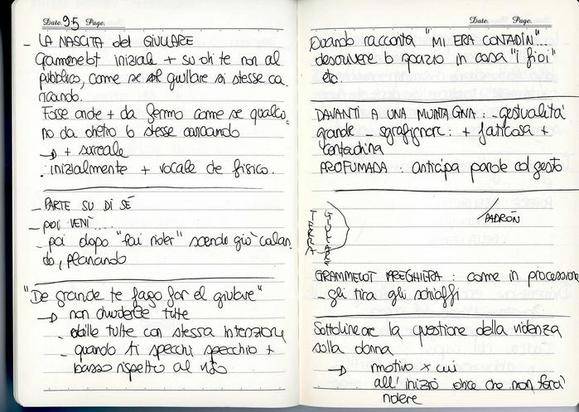 Date. 9.5 Page.
- LA NASCITA del GIULLARE
Gramenelot iniziale + su di te non al
pubblico, come se il giullare si stesse ca
ricando.
Fosse anche + da fermo come se qualcu
no da dietro lo stesse caricando
→ + surreale
. inizialmente + vocale che fisico.
- PARTE SU DI SÉ
- POI VENÍ
- poi dopo "fai rider" scende giù calan
do, planando
"De grande te fago far el giulare"
→ non chiuderle tutte
- dille tutte con stessa intenzione
- quando ti specchi specchio +
basso rispetto al viso
Date. Page.
Quando racconta "MI ERA CONTADÍN"...
descrivere lo spazio in casa "i fioi"
etc.
DAVANTI A UNA MONTAGNA: - gestualità
grande - sgrafignare: + faticosa +
contadina
PROFUMADA: anticipa parole col gesto
TERRA
GIULLARE
PADRÓN
GRAMMELOT PREGHIERA: come in processione
- gli tira gli schiaffi
Sottolineare la questione della violenza
sulla donna
→ motivo x cui
all'inizio dice che non farà
ridere